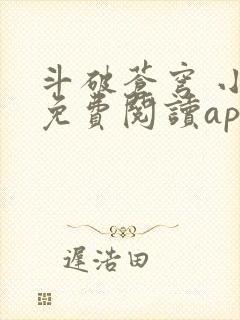 斗破蒼穹 小
免費閱讀ap
遲浩田